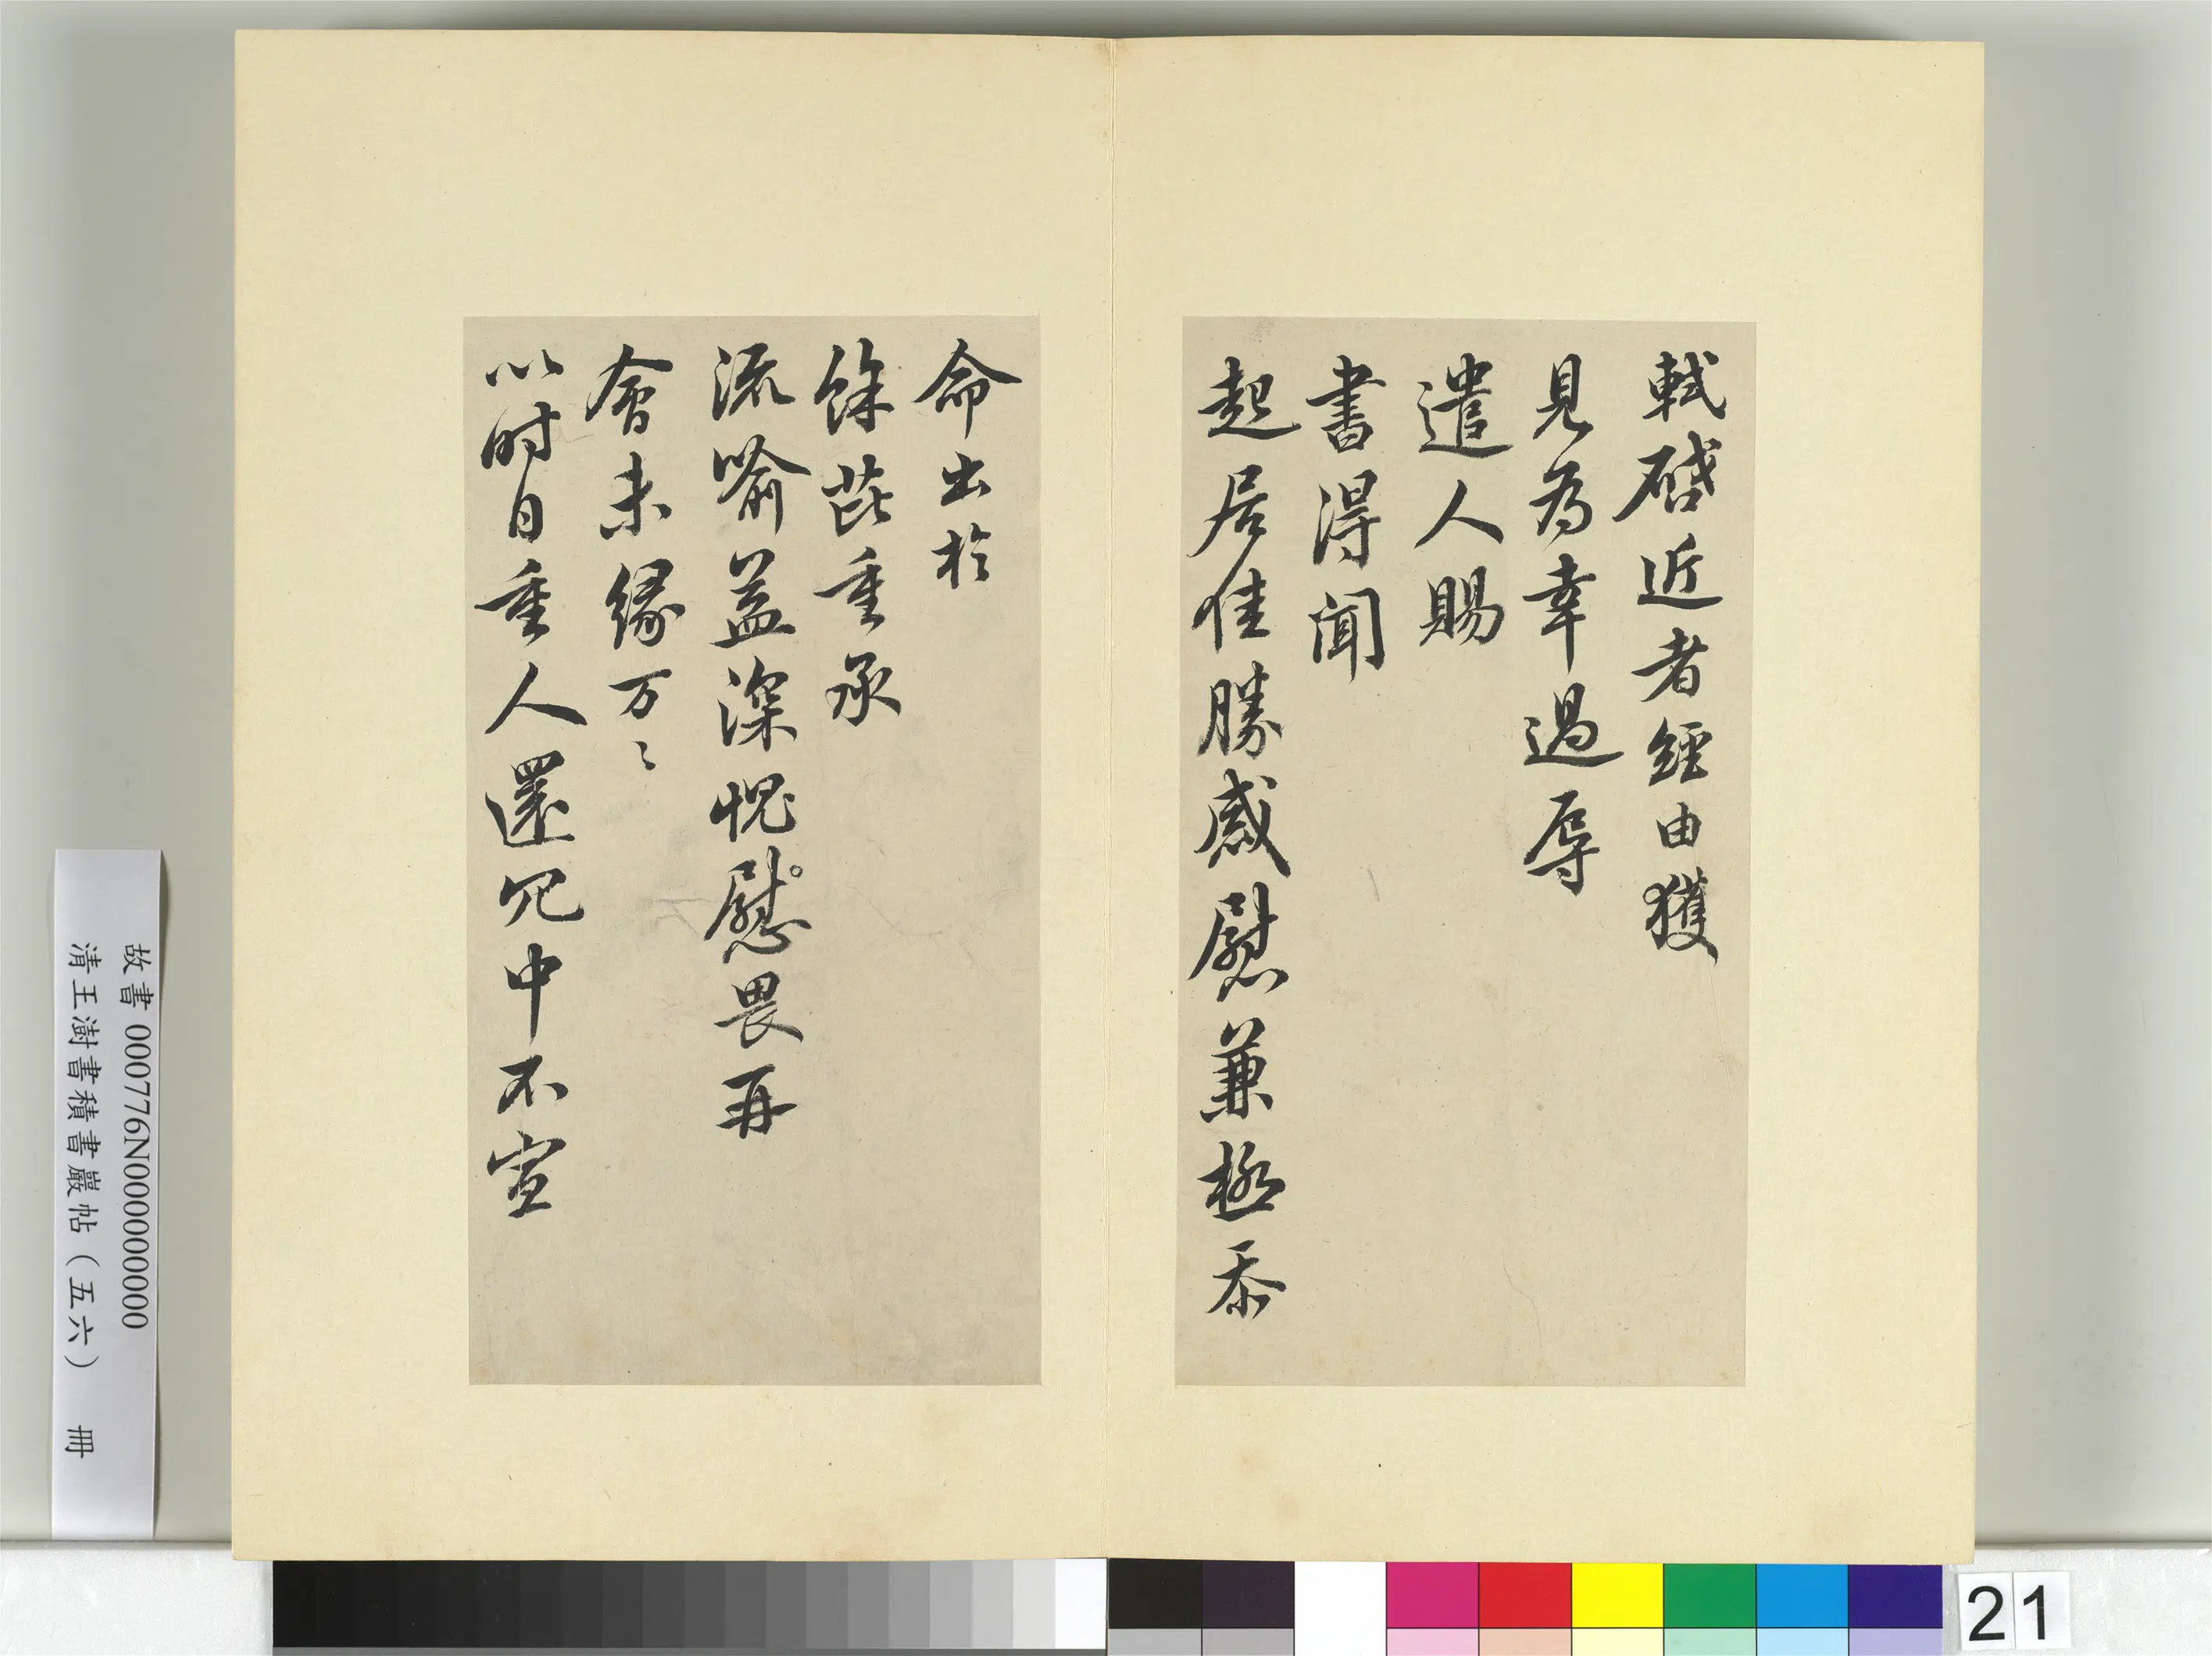 軾啓近者經由獲
見為幸過辱
遣人賜
書得聞
起居佳勝感慰兼極忝
命出於
餘芘重承
流喻益深愧慰畏再
會未緣万〻
以時自重人還冗中不宣
故書 000776N000000000
清王澍書積書巖帖（五六） 冊
21